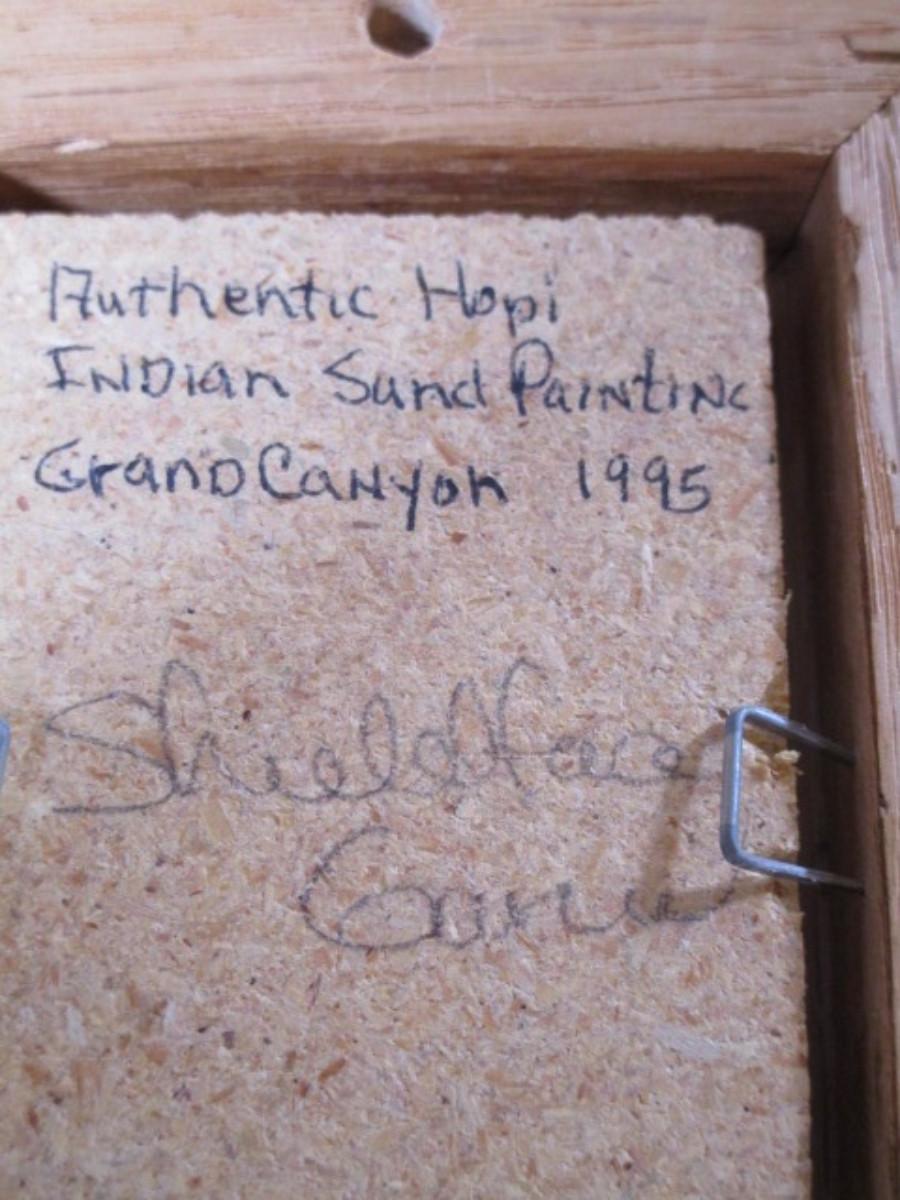 Authentic Hopi
INDian Sand PaintiNG
GranD CaNyon 1995
Shieldface